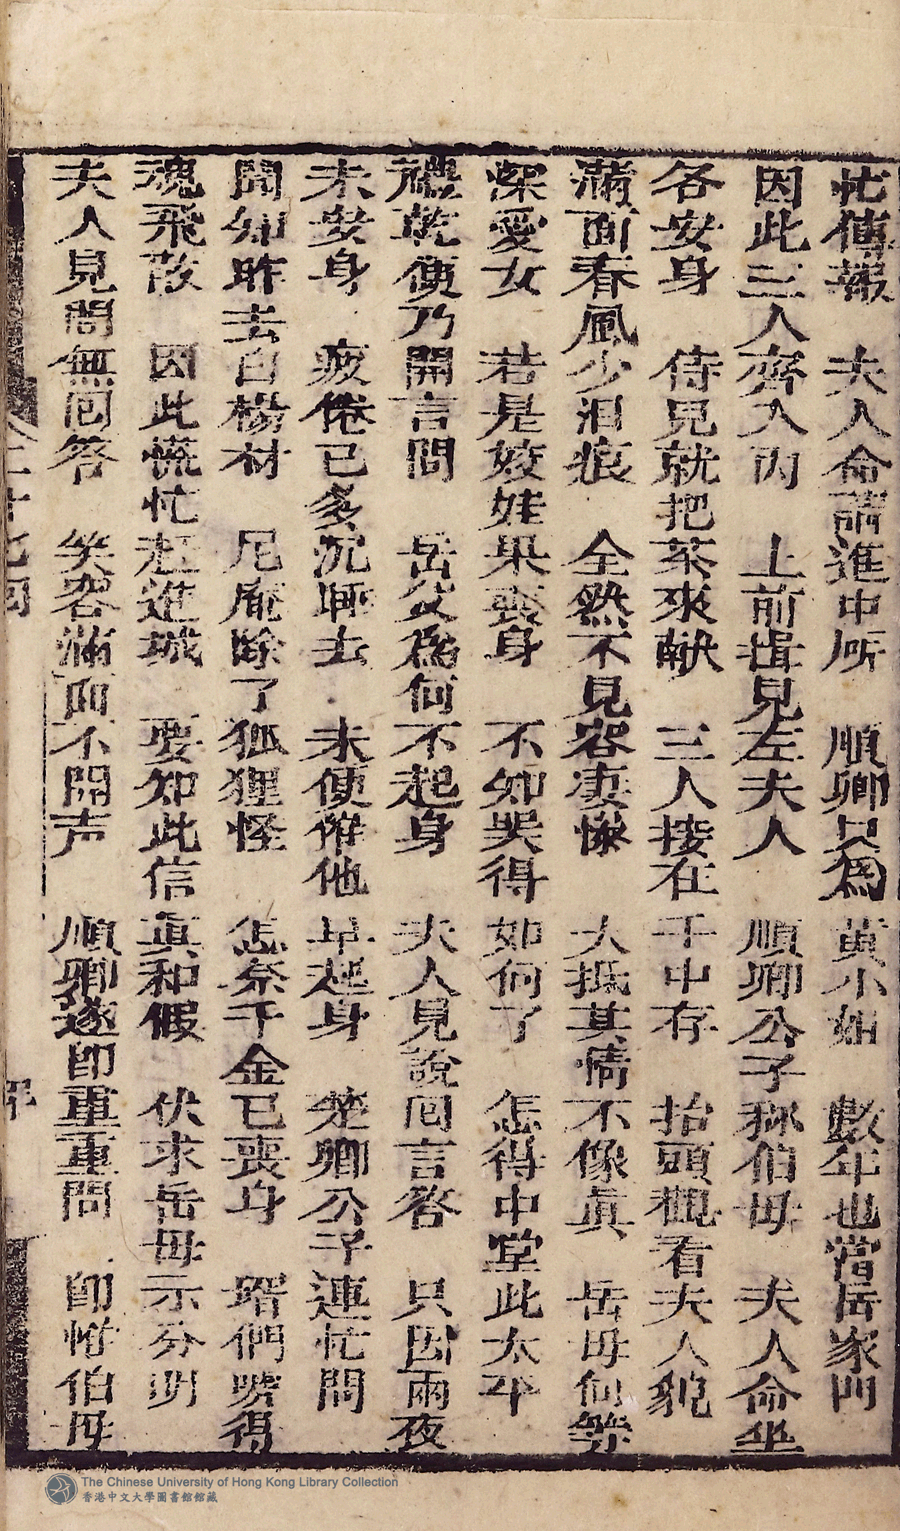 忙傳報　夫人命請進中所　順卿只為黃小姐　數年也當岳家門
因此三人齊入內　上前揖見左夫人　順卿公子称伯母　夫人命坐
各安身　侍児就把茶來献　三人接在手中存　抬頭覌看夫人貌
滿面春風少泪痕　全然不見容凄惨　大抵其情不像真　岳母何等
深愛女　若是姣娃果喪身　不知哭得如何了　怎得中堂此太平
禮乾便乃開言問　岳父為何不起身　夫人見說囘言答　只因兩夜
未安身　疲倦已多沉睡去　未便催他早起身　楚卿公子連忙問
聞知昨去白楊村　尼庵除了狐狸怪　怎奈千金已喪身　壻們唬得
魂飛散　因此慌忙赶進城　要知此信真和假　伏求岳母示分明
夫人見問無囘答　笑容滿面不開声　順卿遂即重重問　即惟伯母
二十七囘
The Chinese University of Hong Kong Library Collection
香港中文大學圖書館館藏